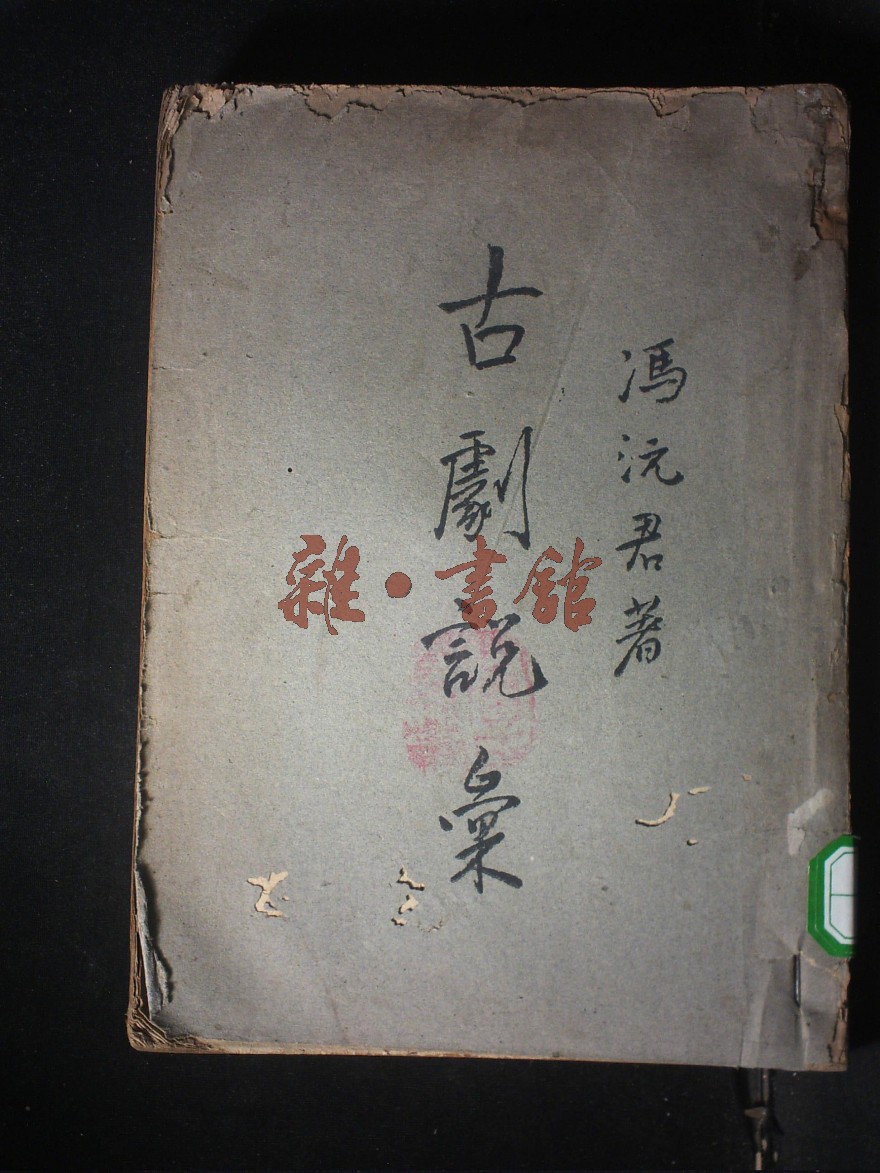 馮沅君著
古劇說彙
雜·書館